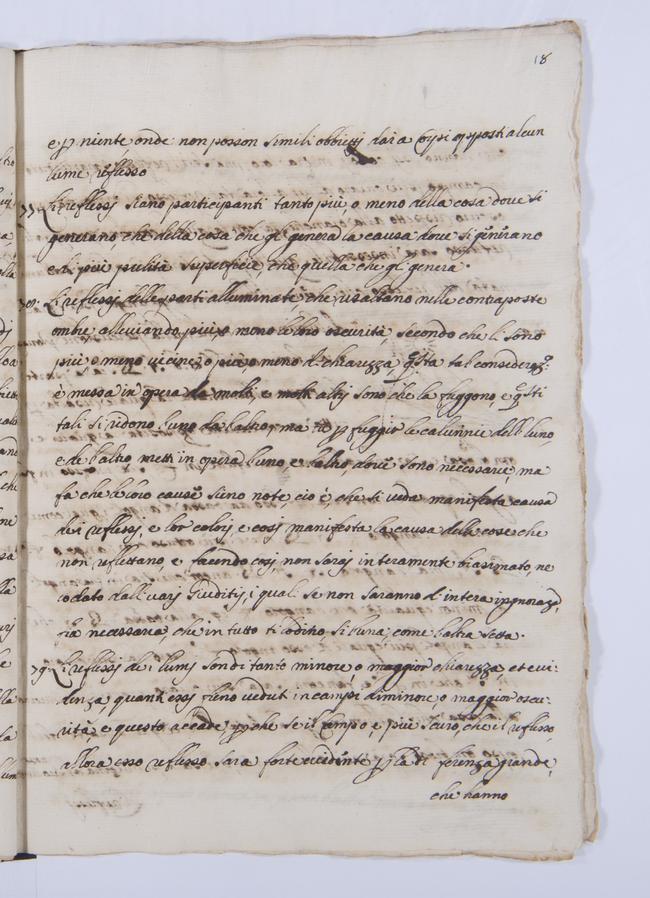 18
e p niente onde non posson simili obbietti dar a corpi opposti alcun
lume reflesso
77. Li reflessi siano participanti tanto più, o meno della cosa dove si
generano che della cosa che gl genera la causa dove si generano
e di più pulita superficie, che quella che gl genera.
Li reflessi delle parti alluminate, che risaltano nelle contraposte
ombre alleviando più, o meno le loro oscurità, secondo che li sono
più, o meno vicine, o più o meno di chiarezza qsta tal
è messa in opera da molti, e molti altri sono che la fuggono e qsti
tali si ridono l'uno da l'altro, ma tu p fuggir le calunnie dell'uno
e de l'altro, metti in opera l'uno, e l'altro, dove sono necessarie, ma
fa che le loro cause sieno note, cio è, che si veda manifesta causa
dei reflessi, e lor colori, e cosi manifesta la causa delle cose che
non reflettano, e facendo cosi, non sarai interamente biasimato, ne
lodato dall varij Giuditij, i quali se non saranno d'intera
fia necessaria, che in tutto ti lodino si l'una, come l'altra setta.
79. Li reflessi dei lumi son di tanto minore, o maggior chiarezza, et evi:
denza quanti essi fieno veduti in campi di minore, o maggior oscu:
rità, e questo accade pche se il campo, e più scuro, che il reflesso,
allora esso reflesso sara forte evidente p la di ferenza grande,
che hanno